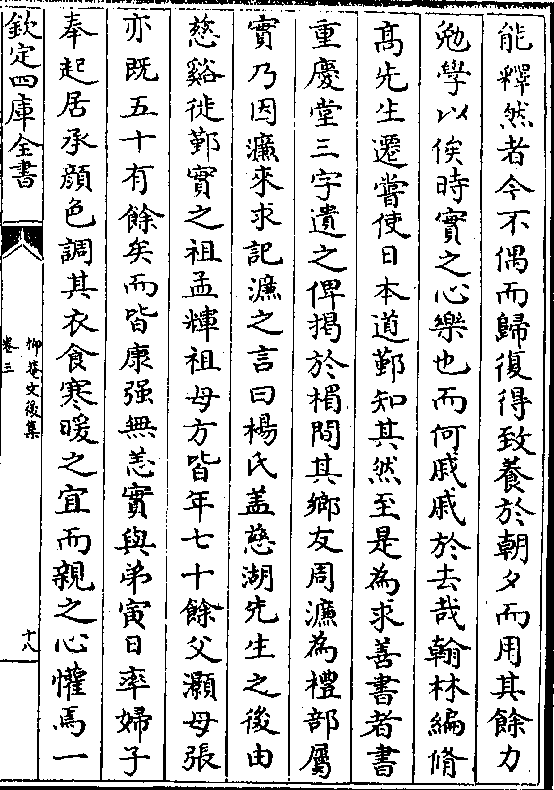 能釋然者今不偶而歸復得致養於朝夕而用其餘力
勉學以俟時實之心樂也而何戚戚於去哉翰林編脩
髙先生遷嘗使日本道鄞知其然至是為求善書者書
重慶堂三字遺之俾掲於楣間其鄉友周濂為禮部屬
實乃因濂來求記濂之言曰楊氏盖慈湖先生之後由
慈谿徙鄞實之祖孟輝祖母方皆年七十餘父灝母張
亦既五十有餘矣而皆康强無恙實與弟寅日率婦子
奉起居承顔色調其衣食寒暖之宜而親之心懽焉一
欽定四庫全書
抑菴文後集
卷三
十八